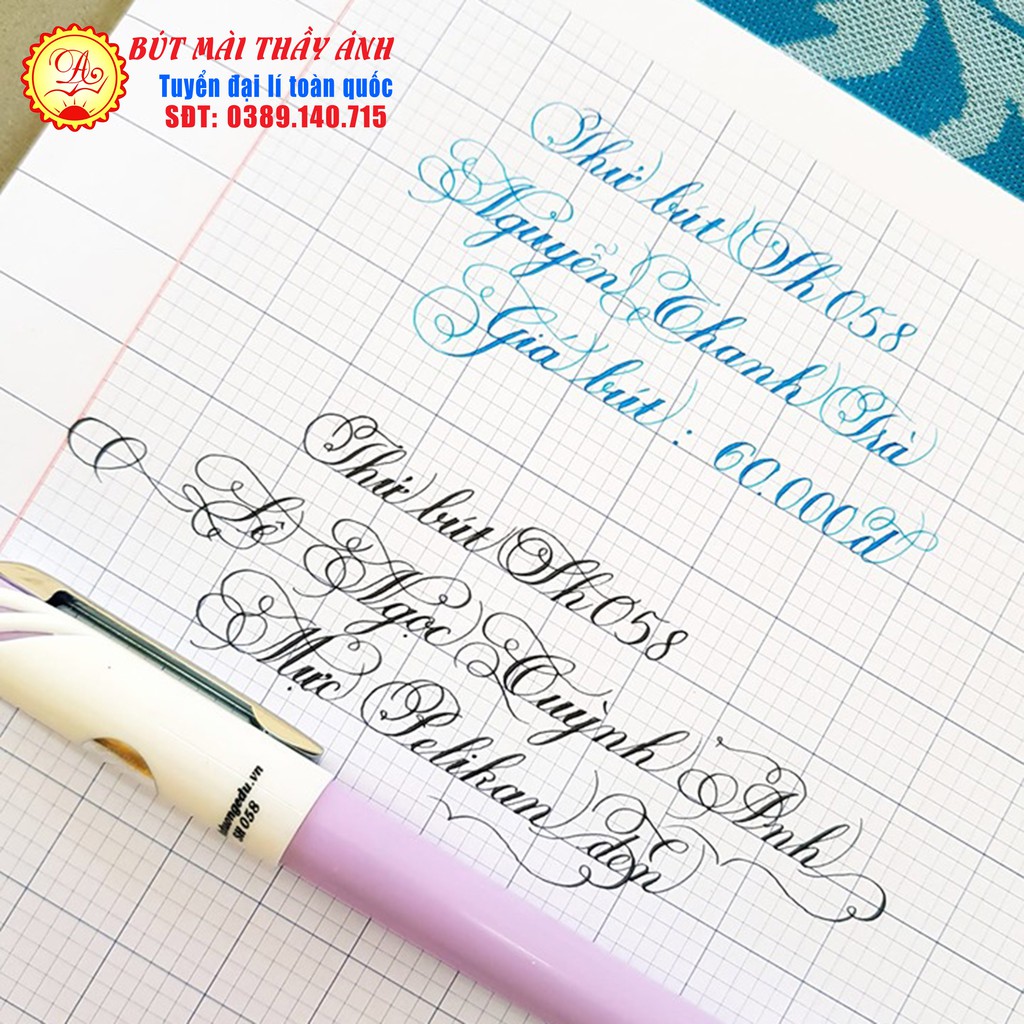 BÚT MÀI THẦY ÁNH
Tuyển đại lí toàn quốc
SĐT: 0389.140.715
Thử bút Sh 058
Nguyễn Thanh Trà
Giá bút : 60.000đ
Thử bút Sh 058
Lê Ngọc Quỳnh Anh
Mực Pelikan đen
SH 058